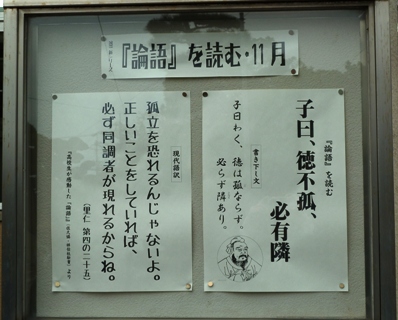 『論語』を読む・11月
『論語』を読む
子曰、徳不孤、
必有隣
書き下し文
子曰わく、徳は孤ならず。
必らず隣あり。
現代語訳
孤立を恐れるんじゃないよ。
正しいことをしていれば、
必ず同調者が現れるからね。
(里仁 第四の二十五)
『高校生が感動した「論語」』
より